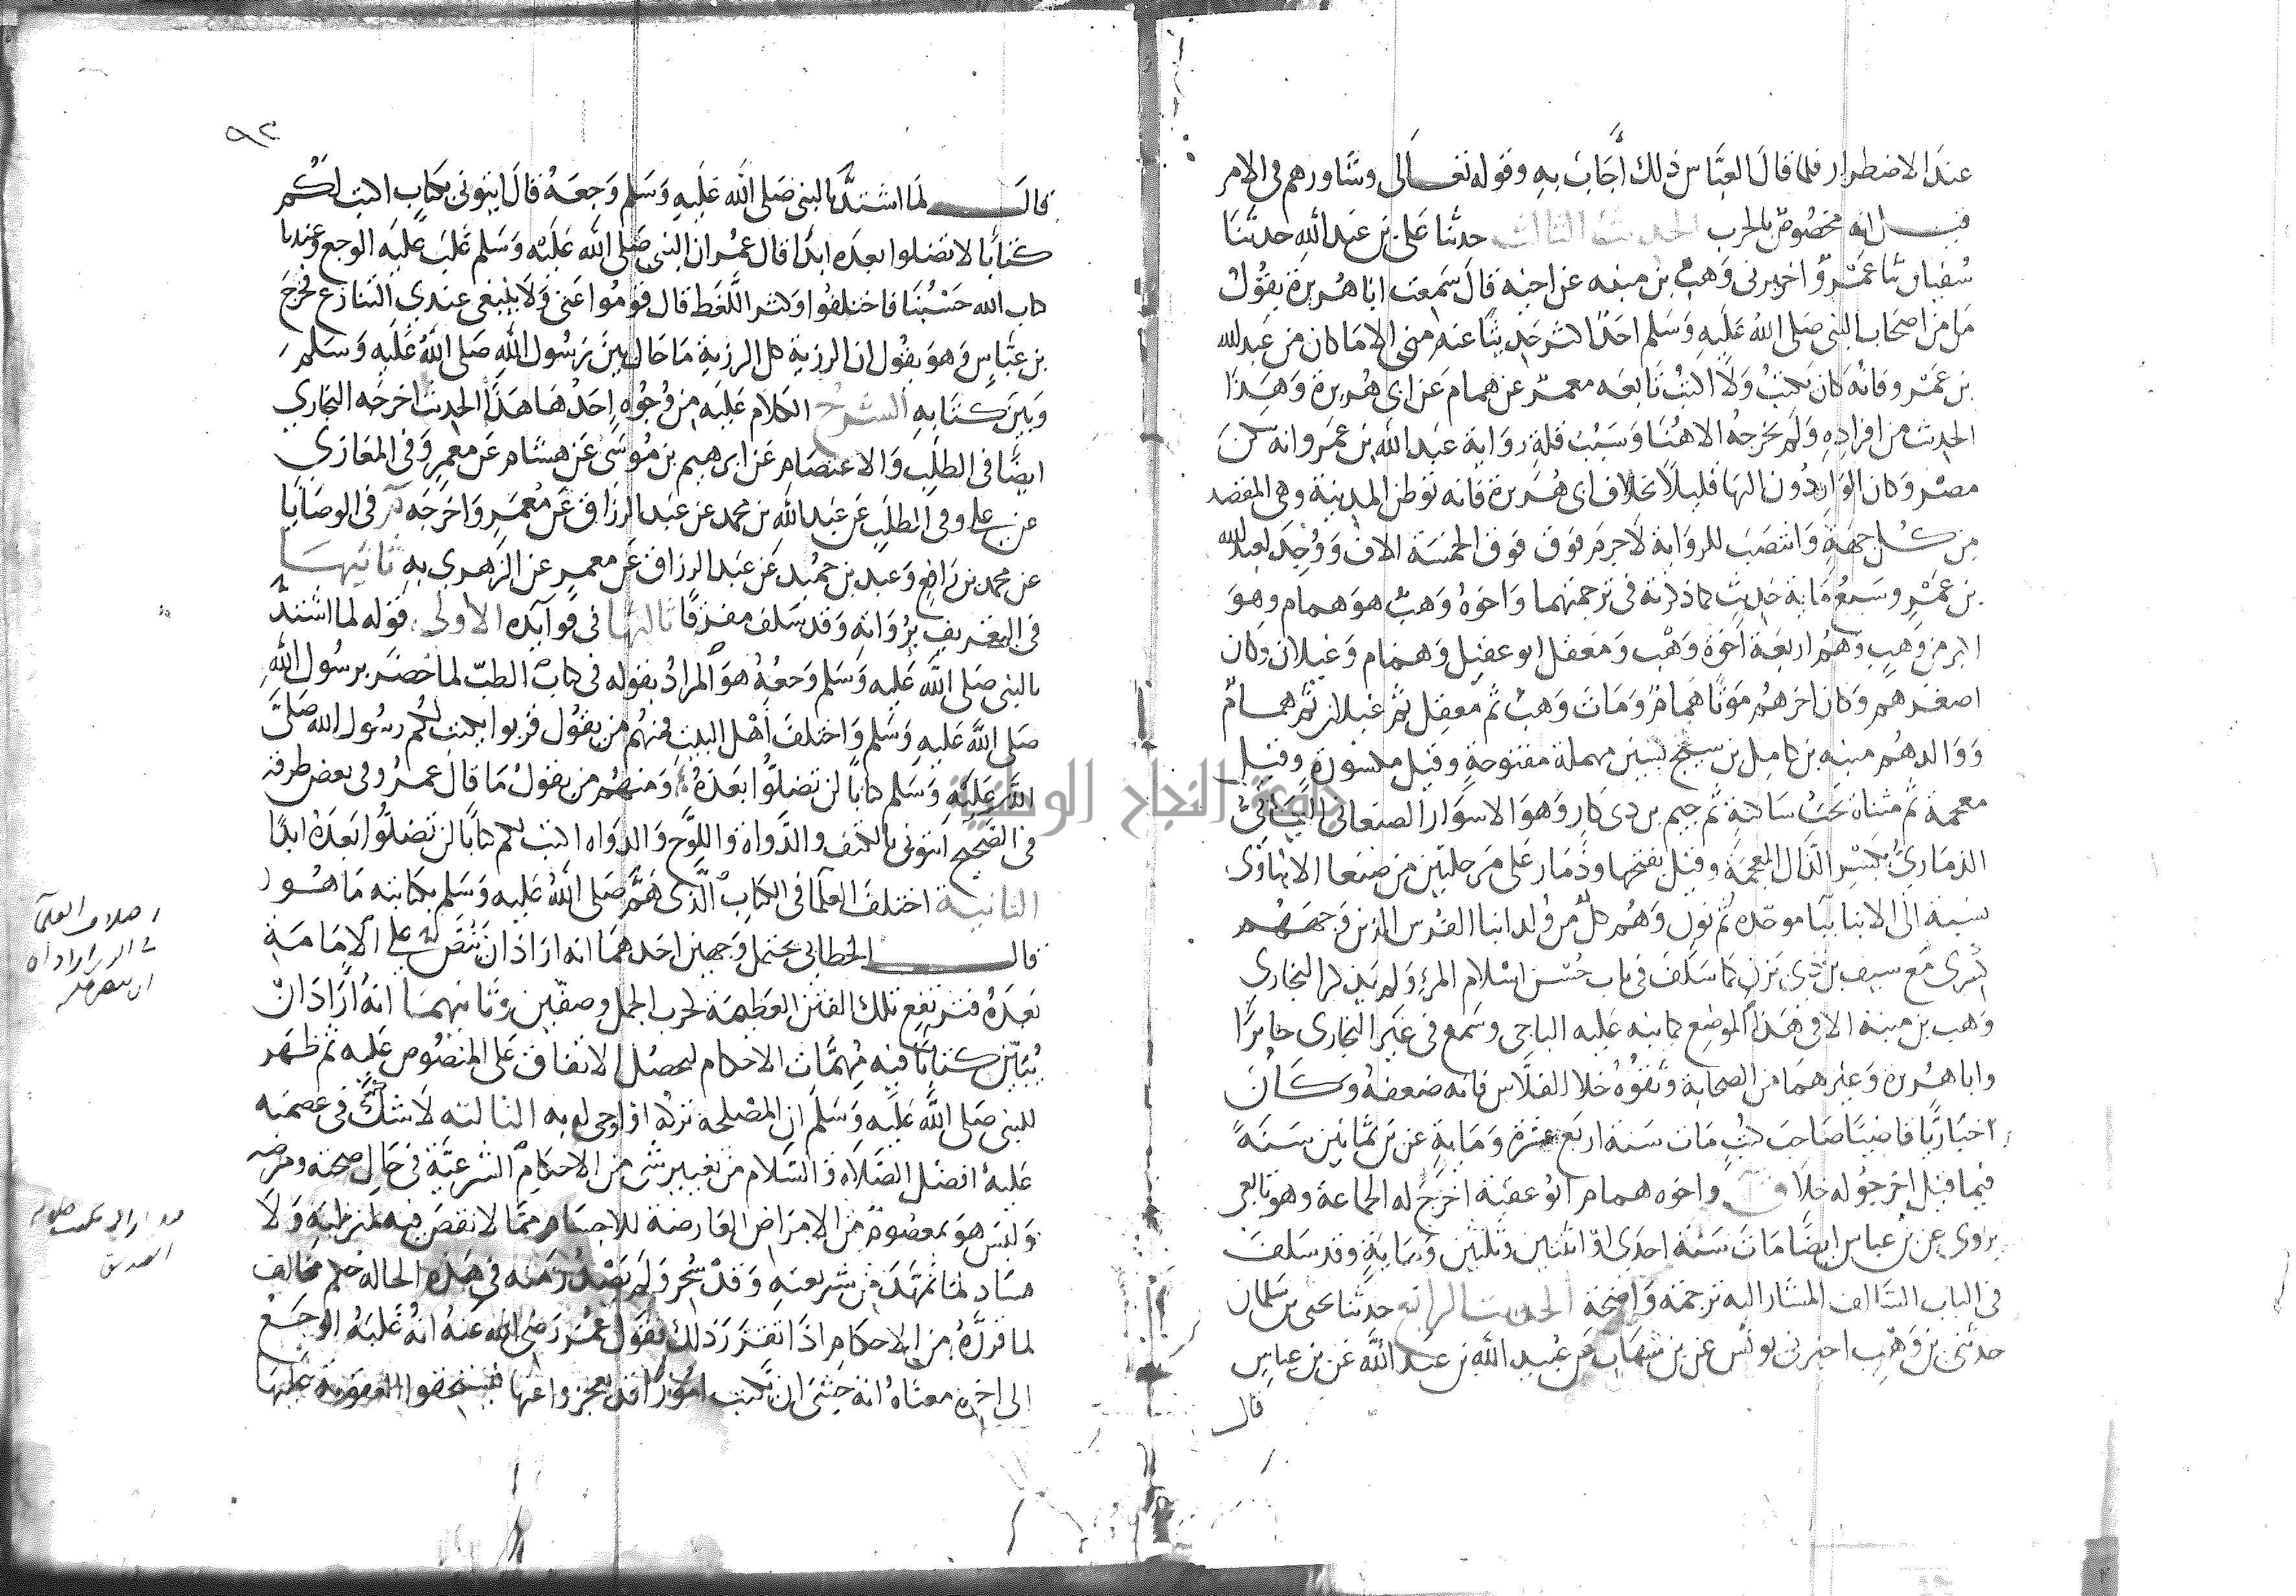 عند الاضطرار فلما قال العباس ذلك أجاب به وقوله تعالى وشاورهم في الامر
قيل انه مخصوص بالحرب الحديث الثالث حدثنا علي بن عبد الله حدثنا
سفيان ثنا عمرو اخبرني وهب بن منبه عن اخيه قال سمعت ابا هريرة يقول
ما من اصحاب النبي صلى الله عليه وسلم احد اكثر حديثا عنه مني الا ما كان من عبد الله
بن عمرو فانه كان يكتب ولا اكتب تابعه معمر عن همام عن ابي هريرة وهذا
الحديث من افراده ولم يخرجه الا هنا وسبب قلة رواية عبد الله بن عمرو انه سكن
مصر وكان الواردون اليها قليلا بخلاف ابي هريرة فانه توطن المدينة وهي المقصد
من كل جهة وانتصب للرواية لا جرم فوق فوق الخمسة الاف ووجد لعبد الله
بن عمرو سبع مايه حديث كما ذكرته في ترجمتهما واخوه وهب هو همام وهو
اكبر من وهب وهم اربعة اخوة وهب ومعقل ابو عقيل وهمام وغيلان وكان
اصغرهم وكان اخرهم موتا همام ومات وهب ثم معقل ثم غيلان ثم همام
ووالدهم منبه بن كامل بن سيج بسين مهملة مفتوحة وقيل مكسورة وقيل
معجمة ثم مثناة تحت ساكنة ثم جيم بن ذي كبار وهو الاسوار الصنعاني اليماني
الذماري بكسر الذال المعجمة وقيل بفتحها وذمار على مرحلتين من صنعا الابناوي
نسبة الى الابنا ببا موحده ثم نون وهم كل من ولد ابنا الفرس الذين وجههم
كسرى مع سيف بن ذي يزن كما سلف في باب حسن اسلام المرء ولم يذكر البخاري
وهب بن منبه الا في هذا الموضع كما نبه عليه الباجي وسمع في غير البخاري جابرا
وابا هريرة وغيرهما من الصحابة وثقوه خلا الفلاس فانه ضعفه وكان
اخباريا قاضيا صاحب كتب مات سنة اربع عشرة ومايه عن ثمانين سنة
فيما قيل اخرجوا له خلا ق واخوه همام ابو عقبة اخرج له الجماعة وهو تابعي
يروى عن بن عباس ايضا مات سنة احدى او اثنتين وثلثين ومايه وقد سلف
في الباب السالف المشار اليه ترجمته واضحة الحديث الرابع حدثنا يحيى بن سلمان
حدثني بن وهب اخبرني يونس عن بن شهاب عن عبيد الله بن عبد الله عن بن عباس
قال
٩٢
قال لما اشتد بالنبي صلى الله عليه وسلم وجعه قال ايتوني بكتاب اكتب لكم
كتابا لا تضلوا بعده ابدا قال عمر ان النبي صلى الله عليه وسلم غلب عليه الوجع وعندنا
كتاب الله حسبنا فاختلفوا وكثر اللغط قال قوموا عني ولا ينبغي عندي التنازع فخرج
بن عباس وهو يقول ان الرزية كل الرزية ما حال بين رسول الله صلى الله عليه وسلم
وبين كتابه الشرح الكلام عليه من وجوه احدها هذا الحديث اخرجه البخاري
ايضا في الطب والاعتصام عن ابرهيم بن موسى عن هشام عن معمر وفي المغازي
عن علي وفي الطب عن عبد الله بن محمد عن عبد الرزاق عن معمر واخرجه م في الوصايا
عن محمد بن رافع وعبد بن حميد عن عبد الرزاق عن معمر عن الزهري به ثانيها
في التعريف برواته وقد سلف مفرقا ثالثها في فوايده الاولى قوله لما اشتد
بالنبي صلى الله عليه وسلم وجعه هو المراد بقوله في كتاب الطب لما حضر برسول الله
صلى الله عليه وسلم واختلف اهل البيت فمنهم من يقول قربوا يكتب لكم رسول الله صلى
الله عليه وسلم كتابا لن تضلوا بعده ومنهم من يقول ما قال عمر وفي بعض طرقه
في الصحيح ائتوني بالكتف والدواة واللوح والدواه اكتب لكم كتابا لن تضلوا بعده ابدا
الثانية اختلف العلما في الكتاب الذي هم صلى الله عليه وسلم بكتابته ما هو
قال الخطابي يحتمل وجهين احدهما انه اراد ان ينص على الامامة
بعده فترتفع تلك الفتن العظيمة كحرب الجمل وصفين وثانيهما انه اراد ان
يبين كتابا فيه مهمات الاحكام ليحصل الاتفاق على المنصوص عليه ثم ظهر
للنبي صلى الله عليه وسلم ان المصلحه تركه او اوحي اليه به الثالثه لا شك في عصمته
عليه افضل الصلاة والسلام من تغيير شي من الاحكام الشرعية في حال صحته ومرضه
وليس هو بمعصوم من الامراض العارضة للاجسام مما لا نقص فيه لمنزلته ولا
فساد لما تمهد من شريعته وقد سحر ولم يصدر منه في هذه الحاله حكم مخالف
لما قرره من الاحكام اذا تقرر ذلك فقول عمر رضي الله عنه انه غلبه الوجع
الى اخره معناه انه خشي ان يكتب امورا قد يعجزوا عنها فيستحقوا العقوبة عليها
جامعة النجاح الوطنية